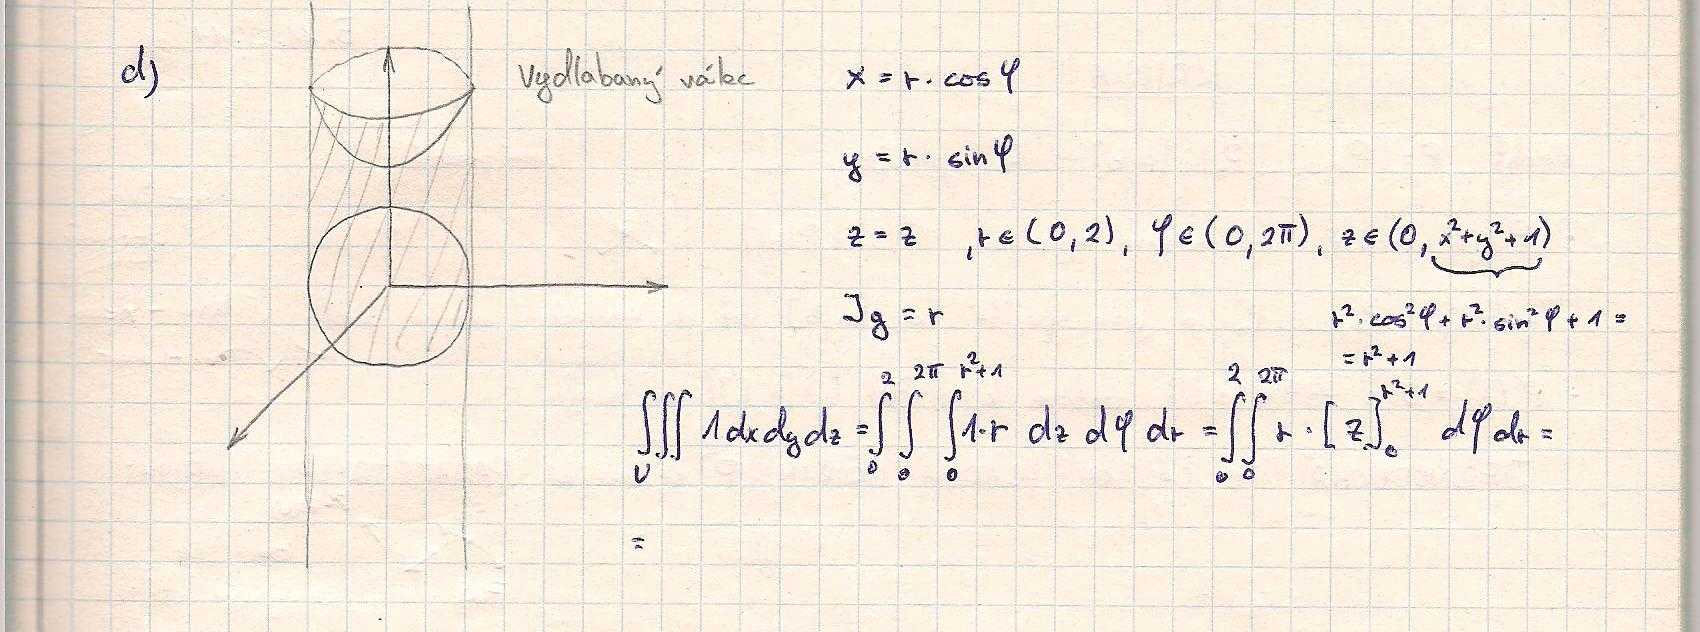 d) Vydlabaný válec x = r · cos φ
y = r · sin φ
z = z , r ∈ (0, 2), φ ∈ (0, 2π), z ∈ (0, x²+y²+1)
Jg = r r² · cos² φ + r² · sin² φ + 1 =
= r² + 1
∫∫∫_U 1 dx dy dz = ∫_0^2 ∫_0^{2π} ∫_0^{r²+1} 1 · r dz dφ dr = ∫_0^2 ∫_0^{2π} r · [z]_0^{r²+1} dφ dr =
=